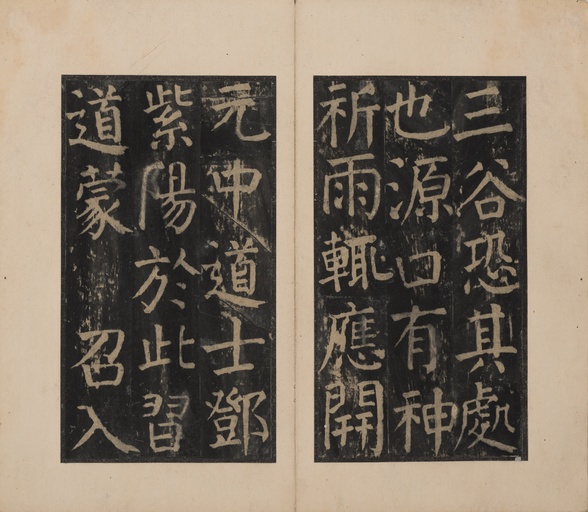 三谷恐其處
也源口有神
祈雨輒應開
元中道士鄧
紫陽於此習
道蒙 召入